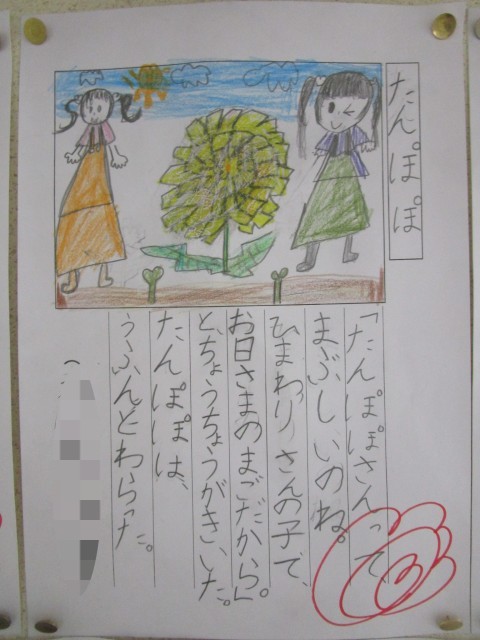 たんぽぽ
「たんぽぽさんって、
まぶしいのね。
ひまわりさんの子で、
お日さまのまごだから」。
と、ちょうちょうがきいた。
たんぽぽは、
うふんとわらった。